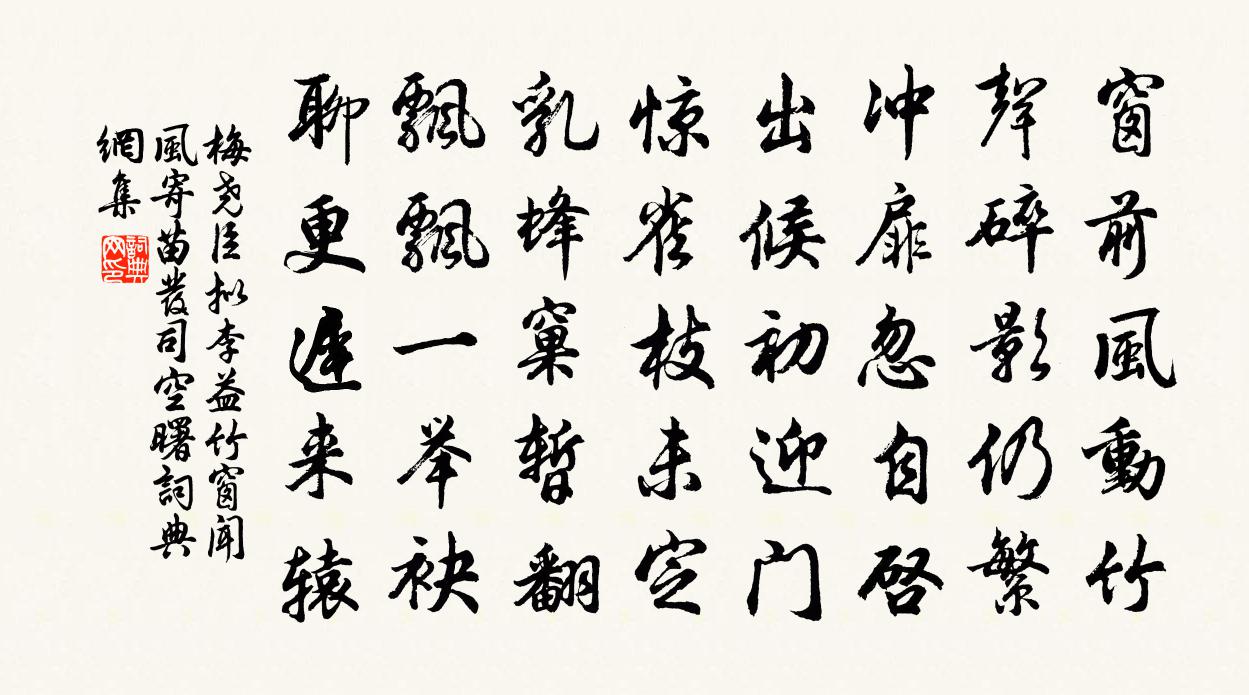 窗前風動竹
聲碎影仍繁
冲扉忽自启
出候初迎门
惊雀枝未定
乳蜂窠暂翻
飘飘一举袂
聊更遲来辕
梅尧臣拟李益竹窗闻
風寄苗發司空曙詞典
網集
詞典
网印